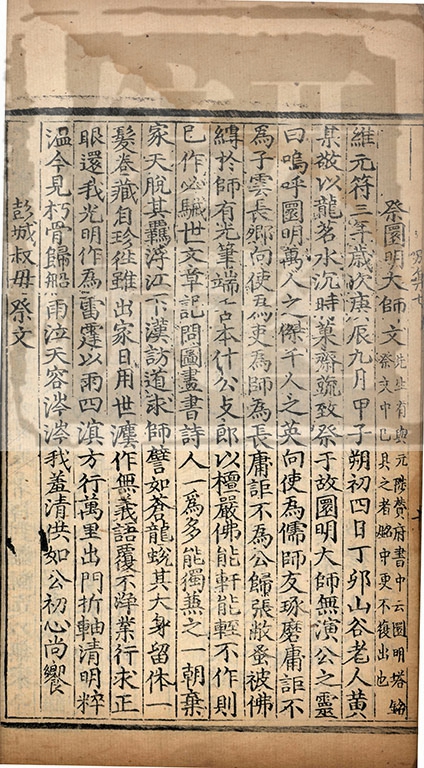 祭圜明大師文
先生有與元陳賛府書中云圜明塔銘
祭文中已具之者銘中更不復出也
維元符三年歲次庚辰九月甲子朔初四日丁邜山谷老人黄
某敬以龍茗水沉時菓齋蔬致祭于故圜明大師無演公之靈
曰嗚呼圜明萬人之傑千人之英向使爲儒師友琢磨庸詎不
爲子雲長卿向使爲吏爲師爲長庸詎不爲公歸張敝蚤被佛
縛於師有光筆端古本什公郎以檀嚴佛能軒能輊不作則
已作必駴世文章記問圖畫書詩人一爲多能獨兼之一朝棄
家天脱其羈浮江下漢訪道求師譬如蒼龍蛻其大身留一
髮卷藏自珍徃雖出家日用世灋作無義語覆不淨業行求正
眼還我光明作爲雷霆以雨四溟方行萬里出門折軸清明粹
温今見朽骨歸船雨泣天容涔涔我羞清供如公初心尚饗
彭城叔母祭文